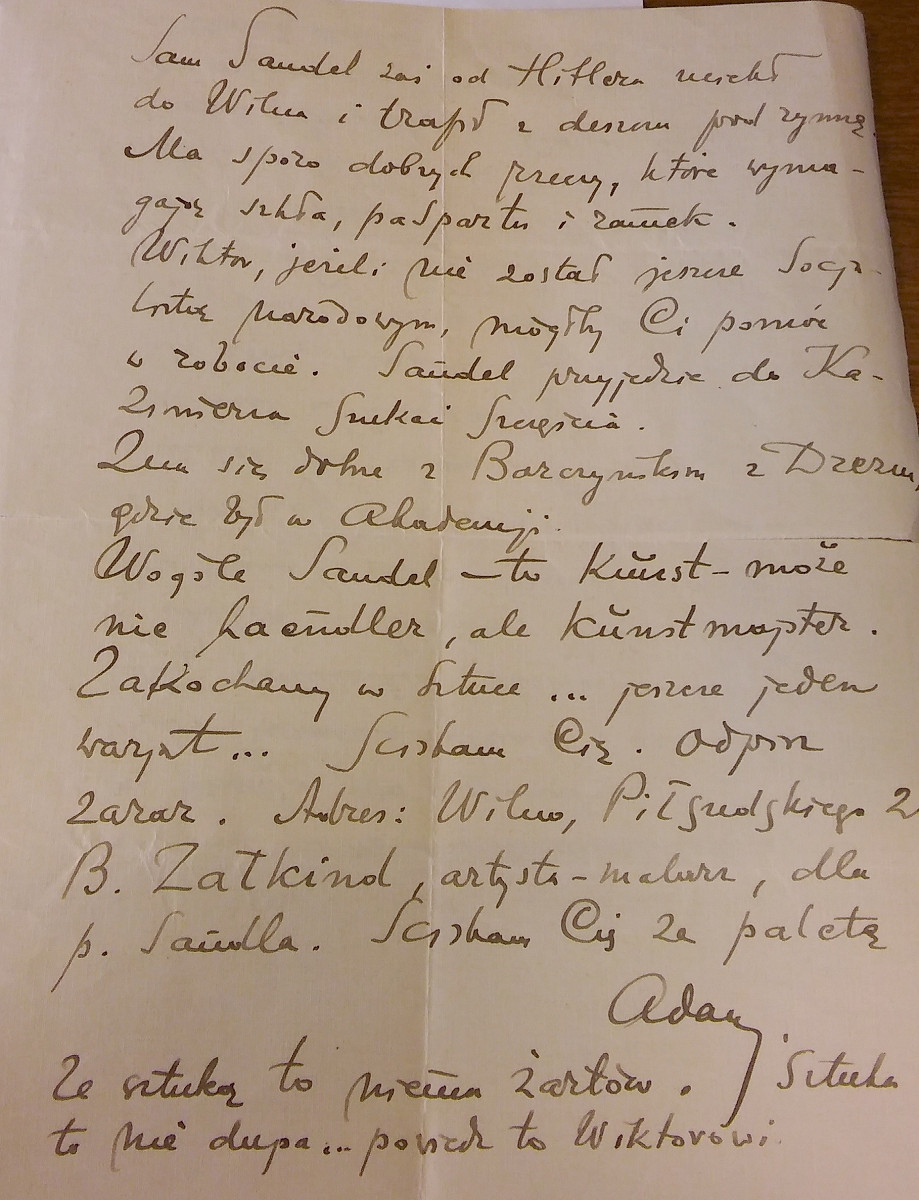 Sam Sandel zaś od Hitlera uciekł
do Wilna i trafił z deszczu pod rynnę.
Ma sporo dobrych rzeczy, które wyma-
gają szkła, paspartu i ramek.
Wiktor, jeżeli nie został jeszcze Socja-
listą narodowym, mógłby Ci pomóc
w robocie. Sandel przyjedzie do Ka-
zimierza szukać szczęścia.
Zna się dobrze z Barczyńskim z Drezna,
gdzie był w Akademji.
Wogóle Sandel – to Kŭnst – może
nie haendler, ale kŭnstmajster.
Zakochany w sztuce ... jeszcze jeden
warjat ... Ściskam Cię. Odpisz
zaraz. Adres: Wilno, Piłsudskiego 2
B. Zalkind, artysta-malarz, dla
p. Sandla. Ściskam Cię ze paletą
Adam.
Ze sztuką to niema żartów. Sztuka
to nie dupa... powiedz to Wiktorowi.